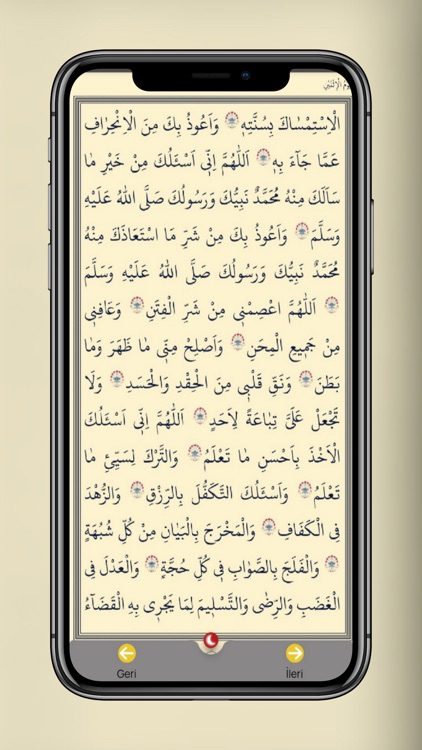 يَوْمُ الْاِثْنَيْنِ
الْاِسْتِمْسَاكَ بِسُنَّتِهٖ وَاَعُوذُ بِكَ مِنَ الْاِنْحِرَافِ
عَمَّا جَآءَ بِهٖ اَللّٰهُمَّ اِنّٖى اَسْئَلُكَ مِنْ خَيْرِ مَا
سَاَلَكَ مِنْهُ مُحَمَّدٌ نَبِيُّكَ وَرَسُولُكَ صَلَّى اللّٰهُ عَلَيْهِ
وَسَلَّمَ وَاَعُوذُ بِكَ مِنْ شَرِّ مَا اسْتَعَاذَكَ مِنْهُ
مُحَمَّدٌ نَبِيُّكَ وَرَسُولُكَ صَلَّى اللّٰهُ عَلَيْهِ وَسَلَّمَ
اَللّٰهُمَّ اعْصِمْنٖى مِنْ شَرِّ الْفِتَنِ وَعَافِنٖى
مِنْ جَمٖيعِ الْمِحَنِ وَاَصْلِحْ مِنّٖى مَا ظَهَرَ وَمَا
بَطَنَ وَنَقِّ قَلْبٖى مِنَ الْحِقْدِ وَالْحَسَدِ وَلَا
تَجْعَلْ عَلَىَّ تِبَاعَةً لِاَحَدٍ اَللّٰهُمَّ اِنّٖى اَسْئَلُكَ
الْاَخْذَ بِاَحْسَنِ مَا تَعْلَمُ وَالتَّرْكَ لِسَيِّئِ مَا
تَعْلَمُ وَاَسْئَلُكَ التَّكَفُّلَ بِالرِّزْقِ وَالزُّهْدَ
فِى الْكَفَافِ وَالْمَخْرَجَ بِالْبَيَانِ مِنْ كُلِّ شُبْهَةٍ
وَالْفَلَجَ بِالصَّوَابِ فٖى كُلِّ حُجَّةٍ وَالْعَدْلَ فِى
الْغَضَبِ وَالرِّضٰى وَالتَّسْلٖيمَ لِمَا يَجْرٖى بِهِ الْقَضَآءُ
Geri
İleri